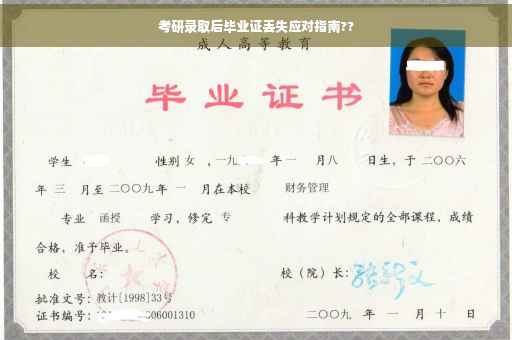 考研录取后毕业证丢失应对指南??
成人高等教育
毕业证书
学生 性别 女 , 一九 年 一 月八 日生，于 二〇〇六
年 三 月至 二〇〇九 年 一 月在本校 财务管理
专业 函授 学习，修完 专 科教学计划规定的全部课程，成绩
合格，准予毕业。
校 名： 校（院）长：
批准文号：教计[1998]33号
证书编号： 06001310 二〇〇九 年 一 月 十 日